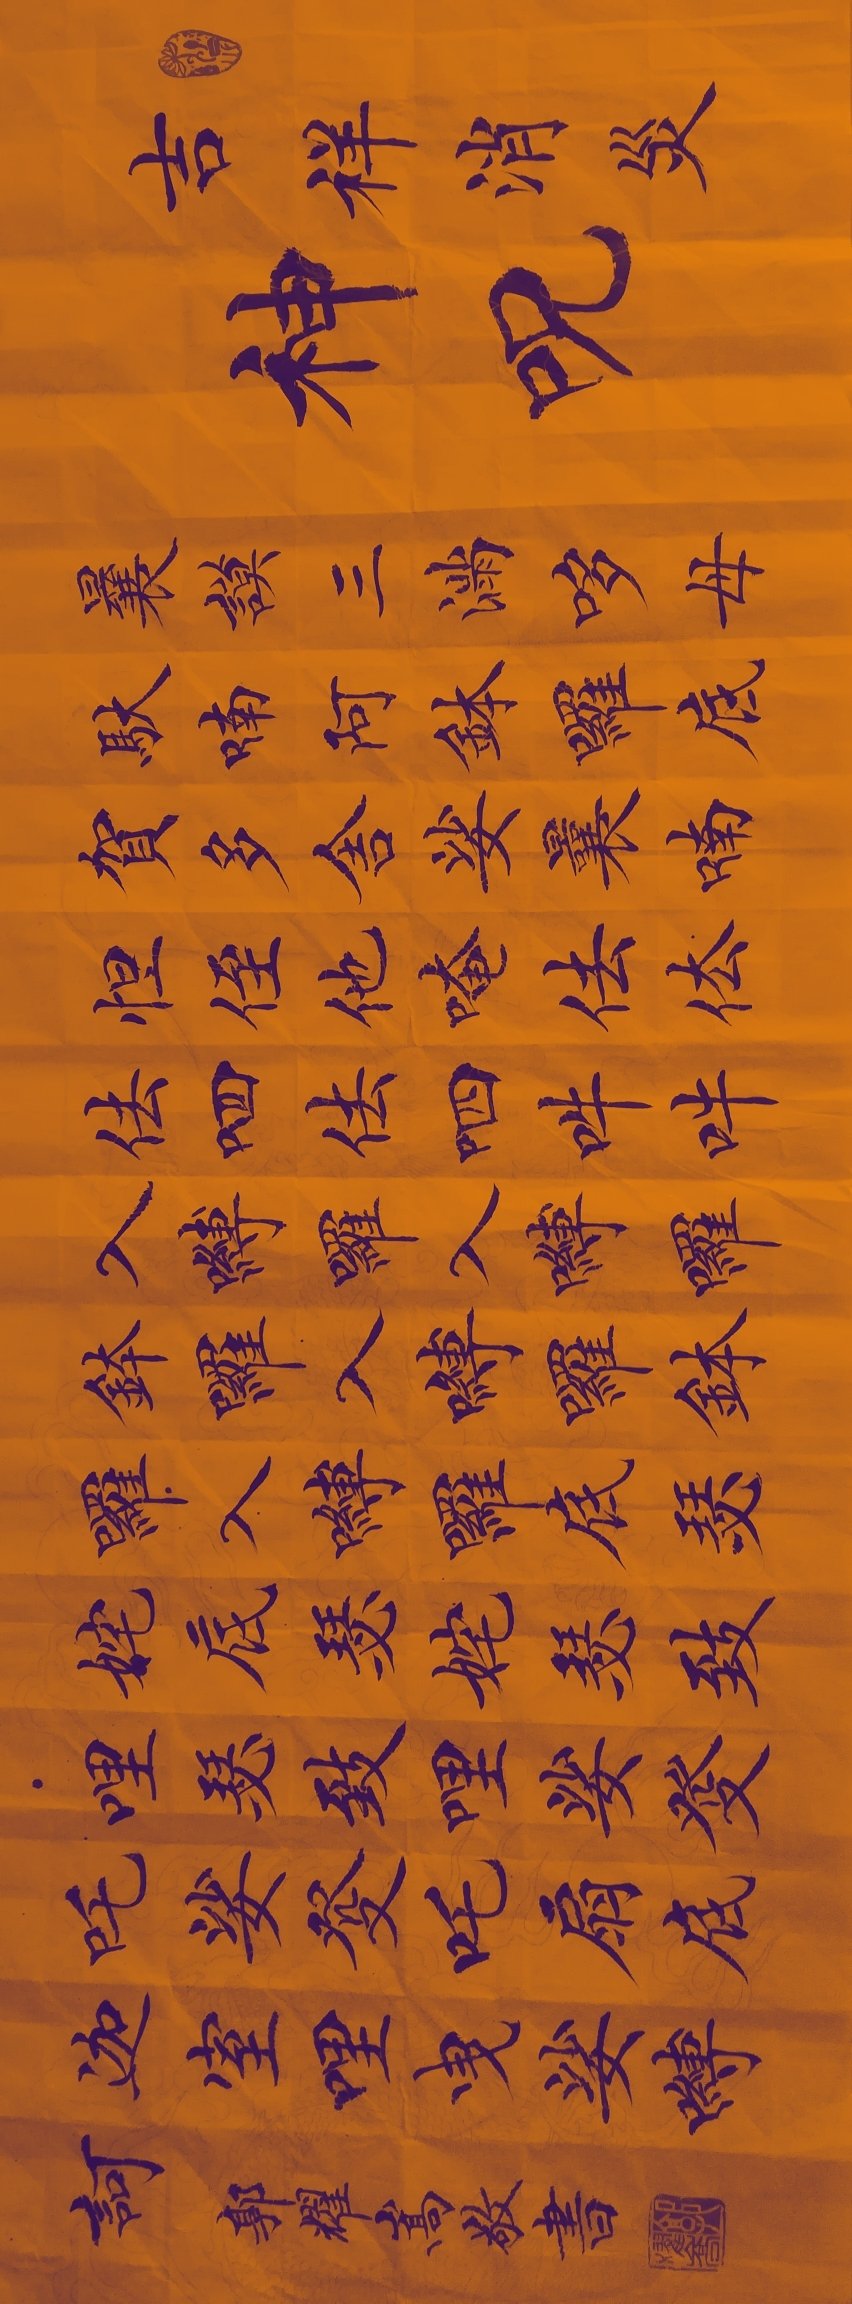 吉祥消災
神咒
曩謨三滿哆母
馱喃阿鉢囉底
賀多舍娑曩喃
怛姪他唵佉佉
佉呬佉呬吽吽
入嚩囉入嚩囉
鉢囉入嚩囉鉢
囉入嚩囉底瑟
姹底瑟姹瑟致
哩瑟致哩娑癹
吒娑癹吒扇底
迦室哩曳娑嚩
訶
鄭耀敬書